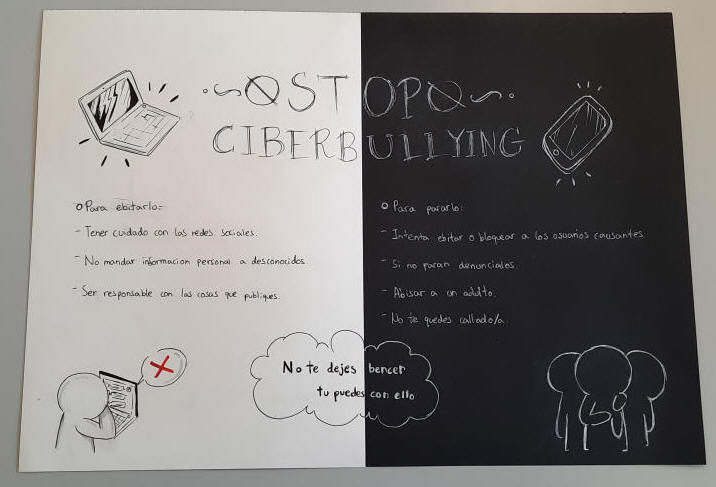 STOP
CIBERBULLYING
Para ebitarlo:
- Tener cuidado con las redes sociales.
- No mandar informacion personal a desconocidos.
- Ser responsable con las cosas que publiques.
Para pararlo:
- Intenta ebitar o bloquear a los usuarios causantes.
- Si no paran denuncialos.
- Abisar a un adulto.
- No te quedes callado/a.
No te dejes bencer
tu puedes con ello